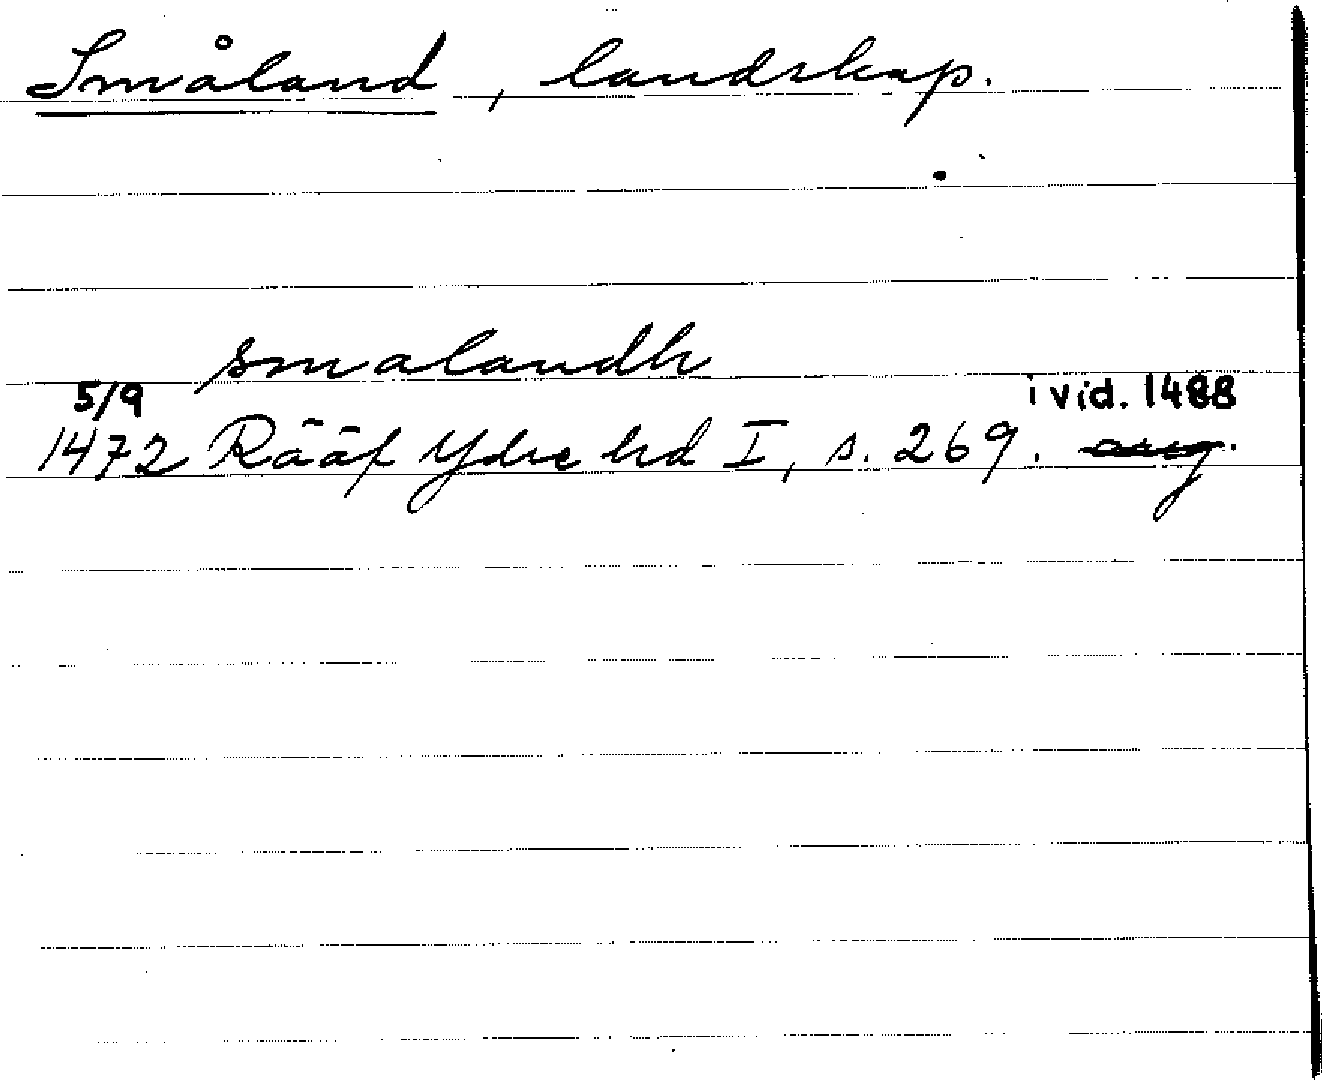 Småland, landskap.
smalandh
5/9 i vid. 1488
1472 Rääf Ydre hd I, s. 269. avg.